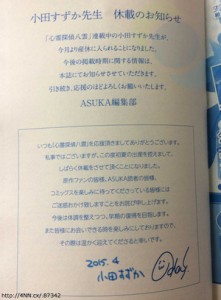 小田すずか先生 休載のお知らせ
「心霊探偵八雲」連載中の小田すずか先生が、
今月より産休に入られることになりました。
今後の掲載時期に関する情報は、
本誌にてお知らせさせていただきます。
引き続き、応援のほどよろしくお願いいたします。
ASUKA編集部
いつも「心霊探偵八雲」を応援頂きましてありがとうございます。
私事ではございますが、この度初夏の出産を控えまして、
しばらく休載をさせて頂くことになりました。
原作ファンの皆様、ASUKA読者の皆様、
コミックスを楽しみに待ってくださっている皆様には
ご迷惑お掛け致しますことをお詫び申し上げます。
今後は体調を整えつつ、早期の復帰を目指します。
また皆様にお会いできる時を楽しみにしておりますので、
その際は温かく迎えてくださると幸いです。
2015.4
小田すずか
http://4NN.cx/.87342